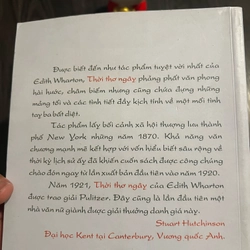 Được biết đến như tác phẩm tuyệt vời nhất của
Edith Wharton, Thời thơ ngây phảng phất văn phong
hài hước, châm biếm nhưng cũng chứa đựng những
mảng tối và các tình tiết đầy kịch tính về một mối tình
tay ba bất diệt.
Tác phẩm lấy bối cảnh xã hội thượng lưu thành
phố New York những năm 1870. Khả năng văn
chương mạnh mẽ kết hợp với vốn hiểu biết sâu rộng về
thời kỳ lịch sử ấy đã khiến cuốn sách được công chúng
chào đón ngay từ lần xuất bản đầu tiên vào năm 1920.
Năm 1921, Thời thơ ngây của Edith Wharton
được trao giải Pulitzer. Đây cũng là lần đầu tiên một
nhà văn nữ giành được giải thưởng danh giá này.
Stuart Hutchinson
Đại học Kent tại Canterbury, Vương quốc Anh.